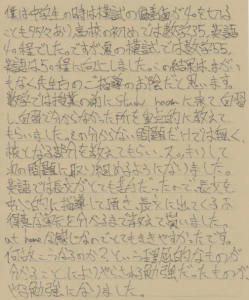 僕は中学生の時は模試の偏差値が40を切る
ことも多々あり高校の初めでは数学35、英語
40程でした。ですが夏の模試では数学55、
英語は50程に向上しました。この結果はまぎれ
もなく先生方のご指導のお陰だと思います。
数学では授業の前にstudy roomに来て自習
し自習で分からなかった所を重点的に教えて
もらいました。その分からない問題だけでは無く、
核となる部分を教えてもらい、スッキリして
次の問題に取り組めるようになりました。
英語では長文がとても苦手だったので、長文を
中心的に指導して頂き、長文に出てくる
単語を分かるまで教えて貰いました。
at homeな感じなのでとてもききやすかったです。
何故こうなるのか?という根底的なものが
分かることによりやらされる勉強だったものが
やる勉強になりました。